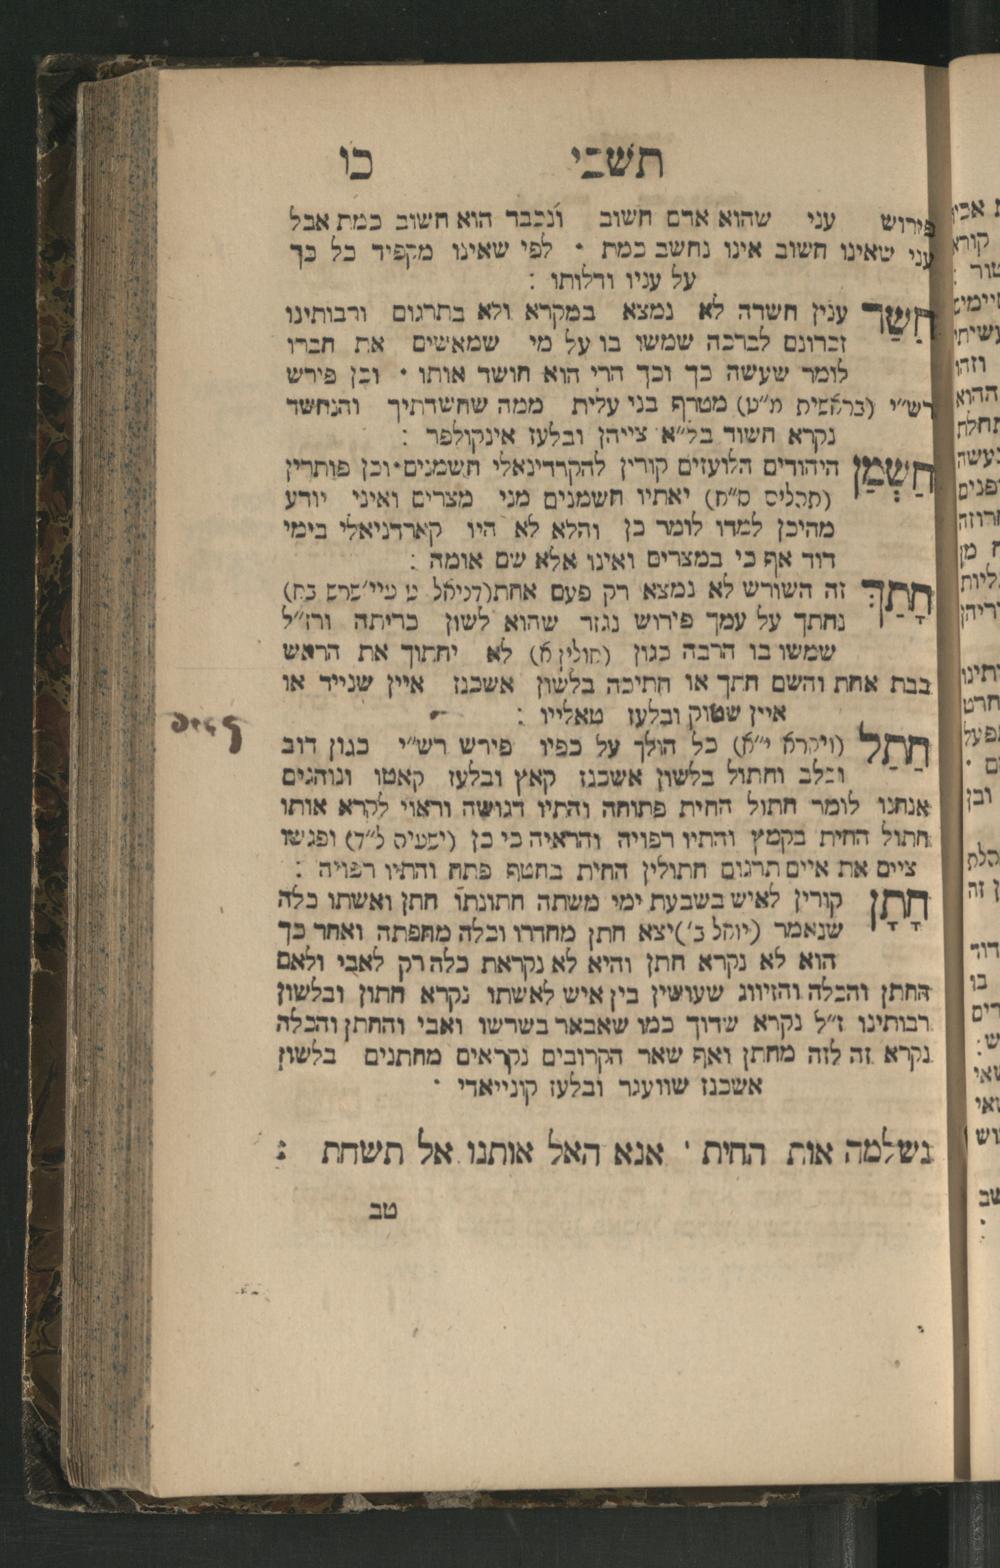 תשבי
כו
פירוש עני שהוא אדם חשוב ונכבד הוא חשוב כמת אבל
עני שאינו חשוב אינו נחשב כמת · לפי שאינו מקפיד כל כך
על עניו ודלותו :
חַשַד ענין חשדה לא נמצא במקרא ולא בתרגום ורבותינו
זכרונם לברכה שמשו בו על מי שמאשים את חברו
לומר שעשה כך וכך הרי הוא חושד אותו · וכן פירש
רש״י (בראשית מ״ט) מטרף בני עלית ממה שחשדתיך והנחשד
נקרא חשוד בל״א צייהן ובלעז אינקולפר :
חַשְמַן היהודים הלועזים קורין להקרדינאלי חשמנים · וכן פותרין
(תהלים ס״ח) יאתיו חשמנים מני מצרים ואיני יודע
מהיכן למדו לומר כן והלא לא היו קארדניאלי בימי
דוד אף כי במצרים ואינו אלא שם אומה :
חָתַךְ זה השורש לא נמצא רק פעם אחת (דניאל ט
נחתך על עמך פירוש נגזר שהוא לשון כריתה ורז״ל
שמשו בו הרבה כגון (חולין א) לא יחתוך את הראש
בבת אחת והשם חתך או חתיכה בלשון אשכנז איין שנייד או
איין שטוק ובלעז טאלייו :
חַתַל (ויקרא י״א) כל הולך על כפיו פירש רש״י כגון דוב
וכלב וחתול בלשון אשכנז קאץ ובלעז קאטו ונוהגים
אנחנו לומר חתול החית פתוחה והתיו דגושה וראוי לקרא אותו
חתול החית בקמץ והתיו רפויה והראיה כי כן (ישעיה ל״ד) ופגשו
ציים את איים תרגום חתולין החית בחטף פתח והתיו רפויה :
חָתָן קורין לאיש בשבעת ימי משתה חתונתו חתן ואשתו כלה
שנאמר (יואל ב׳) יצא חתן מחדרו וכלה מחפתה ואחר כך
הוא לא נקרא חתן והיא לא נקראת כלה רק לאבי ולאם
החתן והכלה והזיווג שעושין בין איש לאשתו נקרא חתון ובלשון
רבותינו ז״ל נקרא שדוך כמו שאבאר בשרשו ואבי והחתן והכלה
נקרא זה לזה מחתן ואף שאר הקרובים נקראים מחתנים בלשון
אשכנז שוועגר ובלעז קונייאדי ·
נשלמה אות החית · אנא האל אותנו אל תשחת :
טב